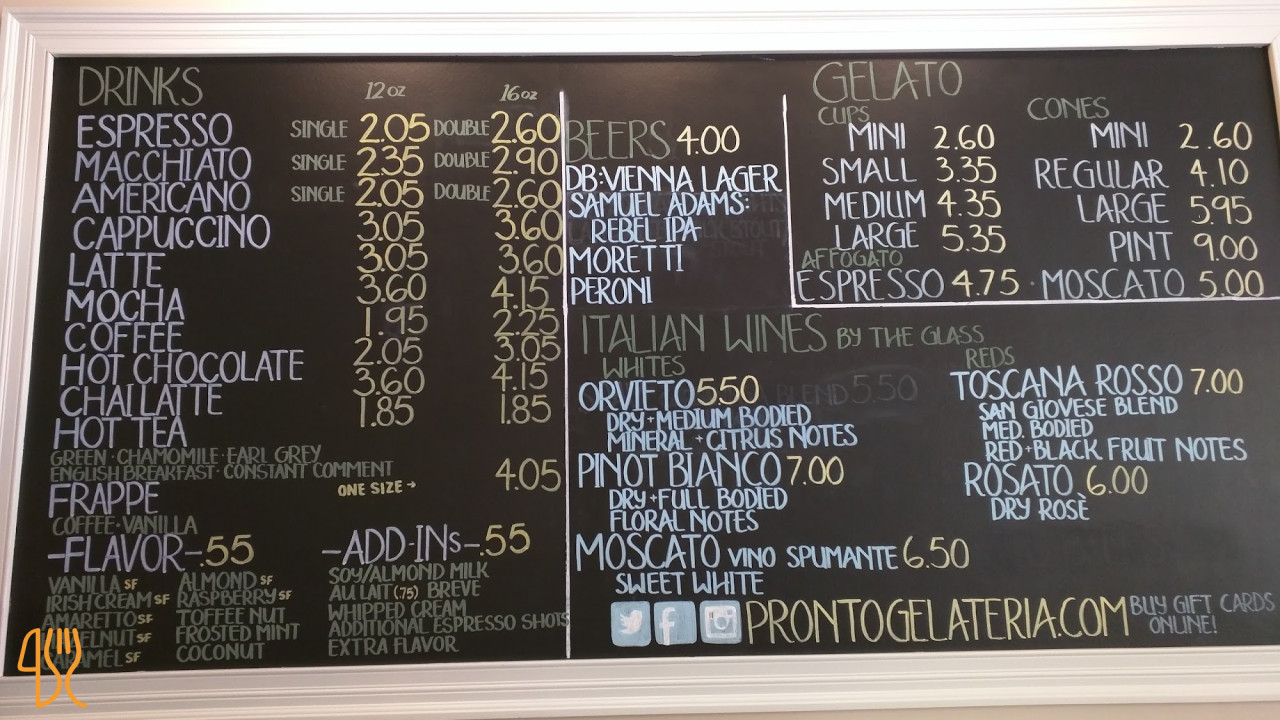 DRINKS 12 oz 16 oz
ESPRESSO SINGLE 2.05 DOUBLE 2.60
MACCHIATO SINGLE 2.35 DOUBLE 2.90
AMERICANO SINGLE 2.05 DOUBLE 2.60
CAPPUCCINO 3.05 3.60
LATTE 3.05 3.60
MOCHA 3.60 4.15
COFFEE 1.95 2.25
HOT CHOCOLATE 2.05 3.05
CHAI LATTE 3.60 4.15
HOT TEA 1.85 1.85
GREEN · CHAMOMILE · EARL GREY
ENGLISH BREAKFAST · CONSTANT COMMENT
FRAPPE ONE SIZE → 4.05
COFFEE · VANILLA
-FLAVOR- .55
VANILLA SF ALMOND SF
IRISH CREAM SF RASPBERRY SF
AMARETTO SF TOFFEE NUT
SF FROSTED MINT
CARAMEL SF COCONUT
-ADD-INs- .55
SOY/ALMOND MILK
AU LAIT (.75) BREVE
WHIPPED CREAM
ADDITIONAL ESPRESSO SHOTS
EXTRA FLAVOR
BEERS 4.00
DB: VIENNA LAGER
SAMUEL ADAMS:
REBEL IPA
MORETTI
PERONI
GELATO
CUPS
MINI 2.60
SMALL 3.35
MEDIUM 4.35
LARGE 5.35
CONES
MINI 2.60
REGULAR 4.10
LARGE 5.95
PINT 9.00
AFFOGATO
ESPRESSO 4.75 · MOSCATO 5.00
ITALIAN WINES BY THE GLASS
WHITES
ORVIETO 5.50 BLEND 5.50
DRY + MEDIUM BODIED
MINERAL + CITRUS NOTES
PINOT BIANCO 7.00
DRY + FULL BODIED
FLORAL NOTES
MOSCATO VINO SPUMANTE 6.50
SWEET WHITE
REDS
TOSCANA ROSSO 7.00
SAN GIOVESE BLEND
MED. BODIED
RED + BLACK FRUIT NOTES
ROSATO 6.00
DRY ROSÈ
PRONTOGELATERIA.COM
BUY GIFT CARDS
ONLINE!